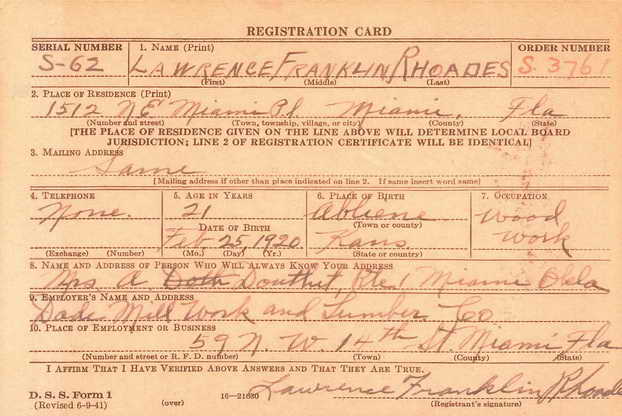 REGISTRATION CARD
SERIAL NUMBER 1. NAME (Print) ORDER NUMBER
S-62 LAWRENCE FRANKLIN RHOADES S. 3761
(First) (Middle) (Last)
2. PLACE OF RESIDENCE (Print)
1512 N.E. Miami Pl. Miami, Fla
(Number and street) (Town, township, village, or city) (County) (State)
[THE PLACE OF RESIDENCE GIVEN ON THE LINE ABOVE WILL DETERMINE LOCAL BOARD
JURISDICTION; LINE 2 OF REGISTRATION CERTIFICATE WILL BE IDENTICAL]
3. MAILING ADDRESS
Same
[Mailing address if other than place indicated on line 2. If same insert word same]
4. TELEPHONE 5. AGE IN YEARS 6. PLACE OF BIRTH 7. OCCUPATION
None. 21 Abilene Wood
DATE OF BIRTH (Town or county)
Feb 25, 1920 Kans. Work
(Exchange) (Number) (Mo.) (Day) (Yr.) (State or country)
8. NAME AND ADDRESS OF PERSON WHO WILL ALWAYS KNOW YOUR ADDRESS
Mrs A Douthit, Rte. 1 Miami Okla
9. EMPLOYER'S NAME AND ADDRESS
Dade Mill Work and Lumber Co
10. PLACE OF EMPLOYMENT OR BUSINESS
59 N.W 14th St Miami Fla
(Number and street or R. F. D. number) (Town) (County) (State)
I AFFIRM THAT I HAVE VERIFIED ABOVE ANSWERS AND THAT THEY ARE TRUE.
D. S. S. Form 1 Lawrence Franklin Rhoades
(Revised 6-9-41) (over) 16-21630 (Registrant's signature)